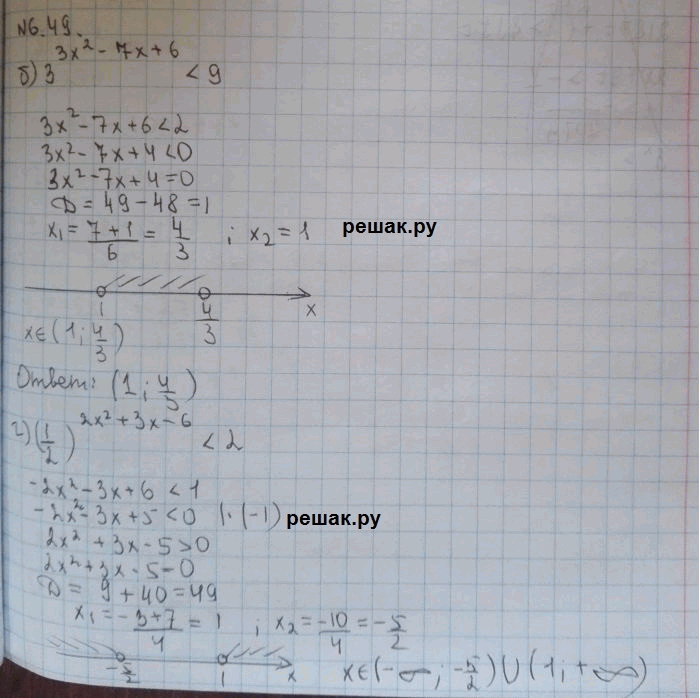 №6.49.
б) 3^(3x² - 7x + 6) < 9
3x² - 7x + 6 < 2
3x² - 7x + 4 < 0
3x² - 7x + 4 = 0
D = 49 - 48 = 1
x₁ = (7 + 1)/6 = 4/3 ; x₂ = 1 решак.ру
1 4/3 x
x ∈ (1; 4/3)
Ответ: (1; 4/3)
г) (1/2)^(2x² + 3x - 6) < 2
-2x² - 3x + 6 < 1
-2x² - 3x + 5 < 0 |·(-1) решак.ру
2x² + 3x - 5 > 0
2x² + 3x - 5 = 0
D = 9 + 40 = 49
x₁ = (-3 + 7)/4 = 1 ; x₂ = -10/4 = -5/2
-5/2 1 x x ∈ (-∞; -5/2) ∪ (1; +∞)